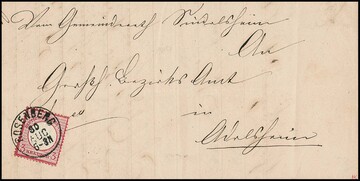 Vom Gemeinderath Sindelsheim
An
Großh. Bezirks Amt
in
Adelsheim
ROSENBERG
30
AUG